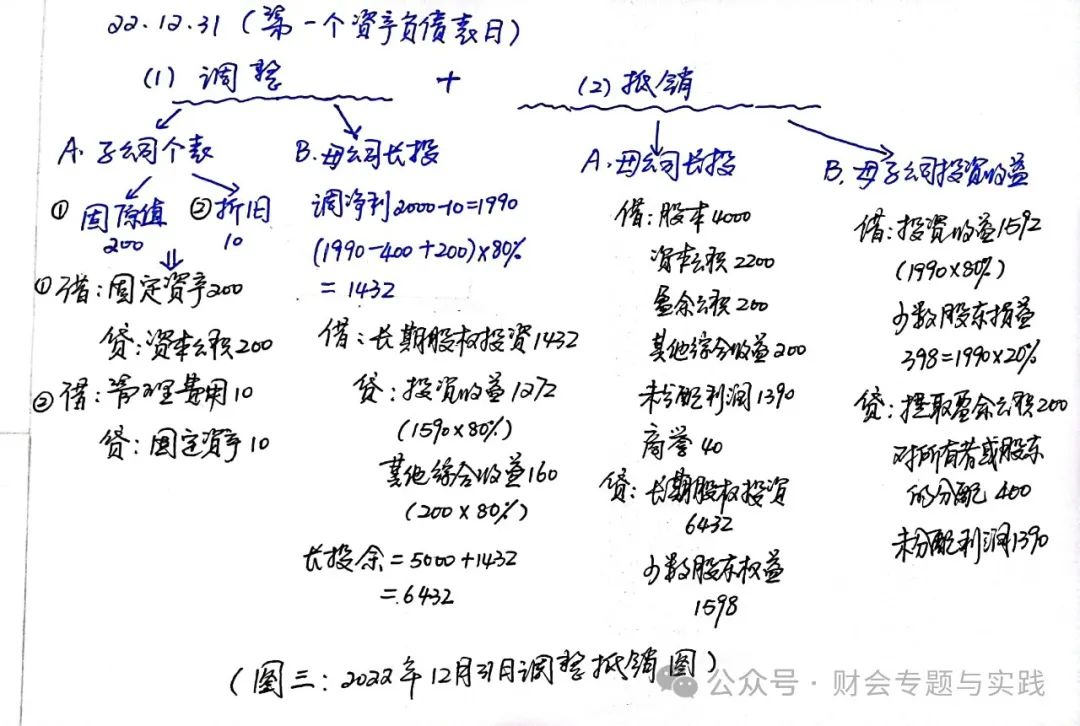 22.12.31(第一个资产负债表日)
(1) 调整 + (2) 抵销
A. 子公司个表
① 固原值 ② 折旧
200 10
①借:固定资产200
贷:资本公积200
②借:管理费用10
贷:固定资产10
B. 母公司长投
调净利2000-10=1990
(1990-400+200)×80%
=1432
借:长期股权投资1432
贷:投资收益1272
(1590×80%)
其他综合收益160
(200×80%)
长投余=5000+1432
=6432
A. 母公司长投
借:股本4000
资本公积2200
盈余公积200
其他综合收益200
未分配利润1390
商誉40
贷:长期股权投资
6432
少数股东权益
1598
B. 母子公司投资收益
借:投资收益1592
(1990×80%)
少数股东损益
398=1990×20%
贷:提取盈余公积200
对所有者或股东
的分配 400
未分配利润1390
(图三:2022年12月31日调整抵销图)
公众号·财会专题与实践